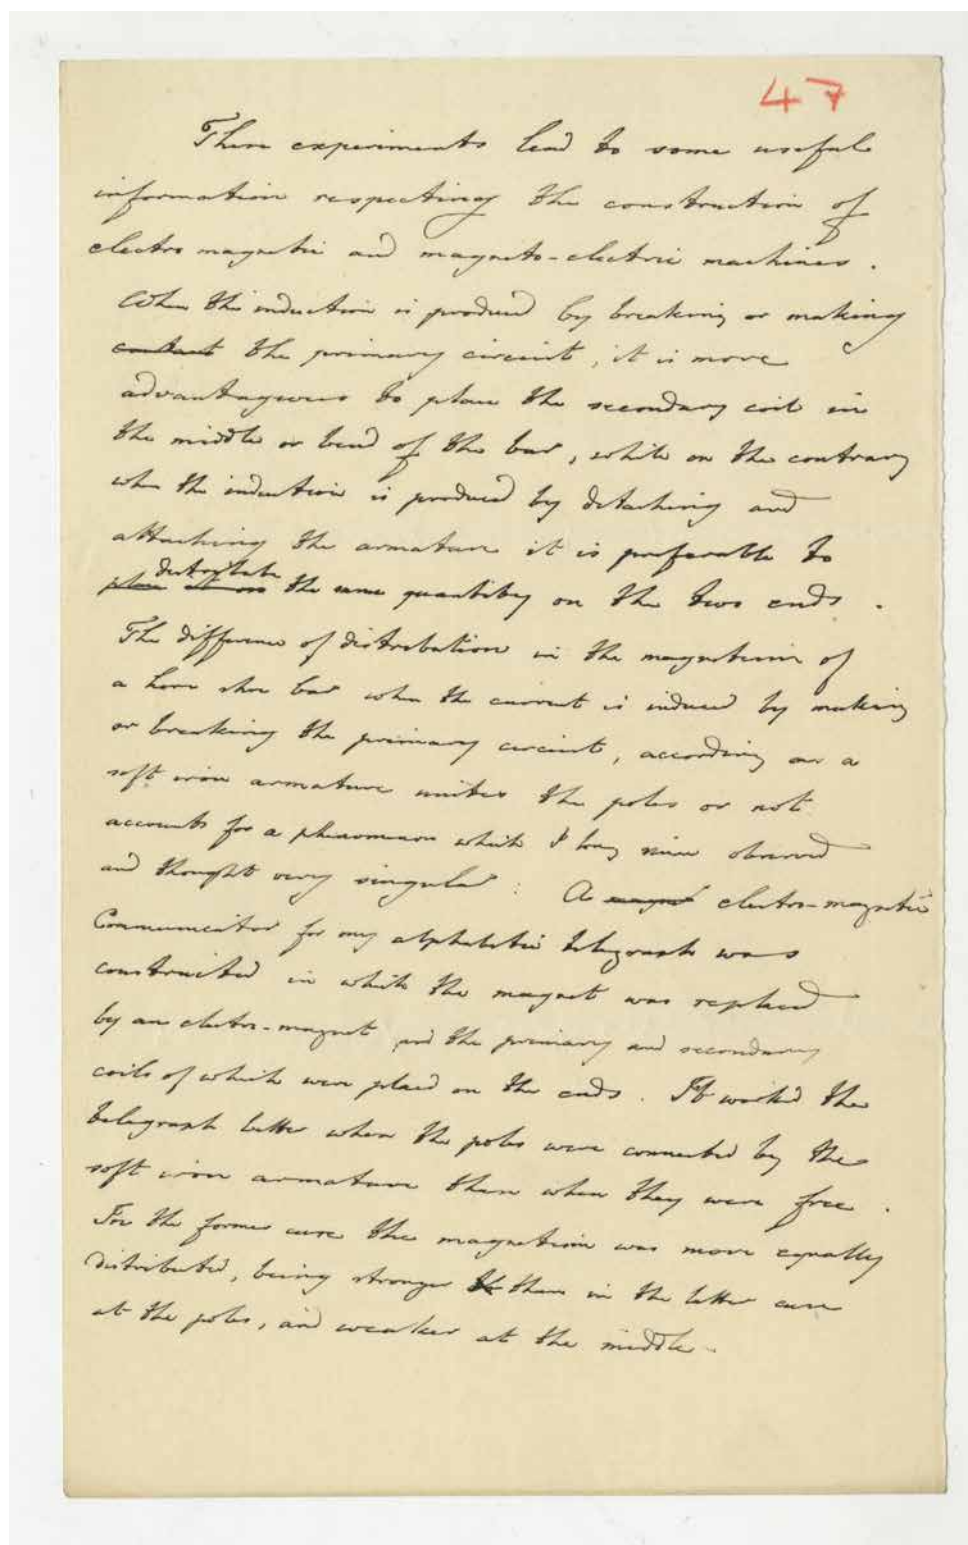 47
These experiments lead to some useful
information respecting the construction of
electro magnetic and magneto-electric machines.
When the induction is produced by breaking or making
contact the primary circuit, it is more
advantageous to place the secondary coil in
the middle or bend of the bar, while on the contrary
when the induction is produced by detaching and
attaching the armature it is preferable to
distribute
place the same quantity on the two ends.
The difference of distribution in the magnetism of
a horse shoe bar when the current is induced by making
or breaking the primary circuit, according as a
soft iron armature unites the poles or not
accounts for a phenomenon which I long since observed
and thought very singular: A magnet electro-magnetic
Communicator for my alphabetic telegraph was
constructed in which the magnet was replaced
by an electro-magnet and the primary and secondary
coils of which were placed on the ends. It worked the
telegraph better when the poles were connected by the
soft iron armature than when they were free.
In the former case the magnetism was more equally
distributed, being stronger than in the latter case
at the poles, and weaker at the middle.